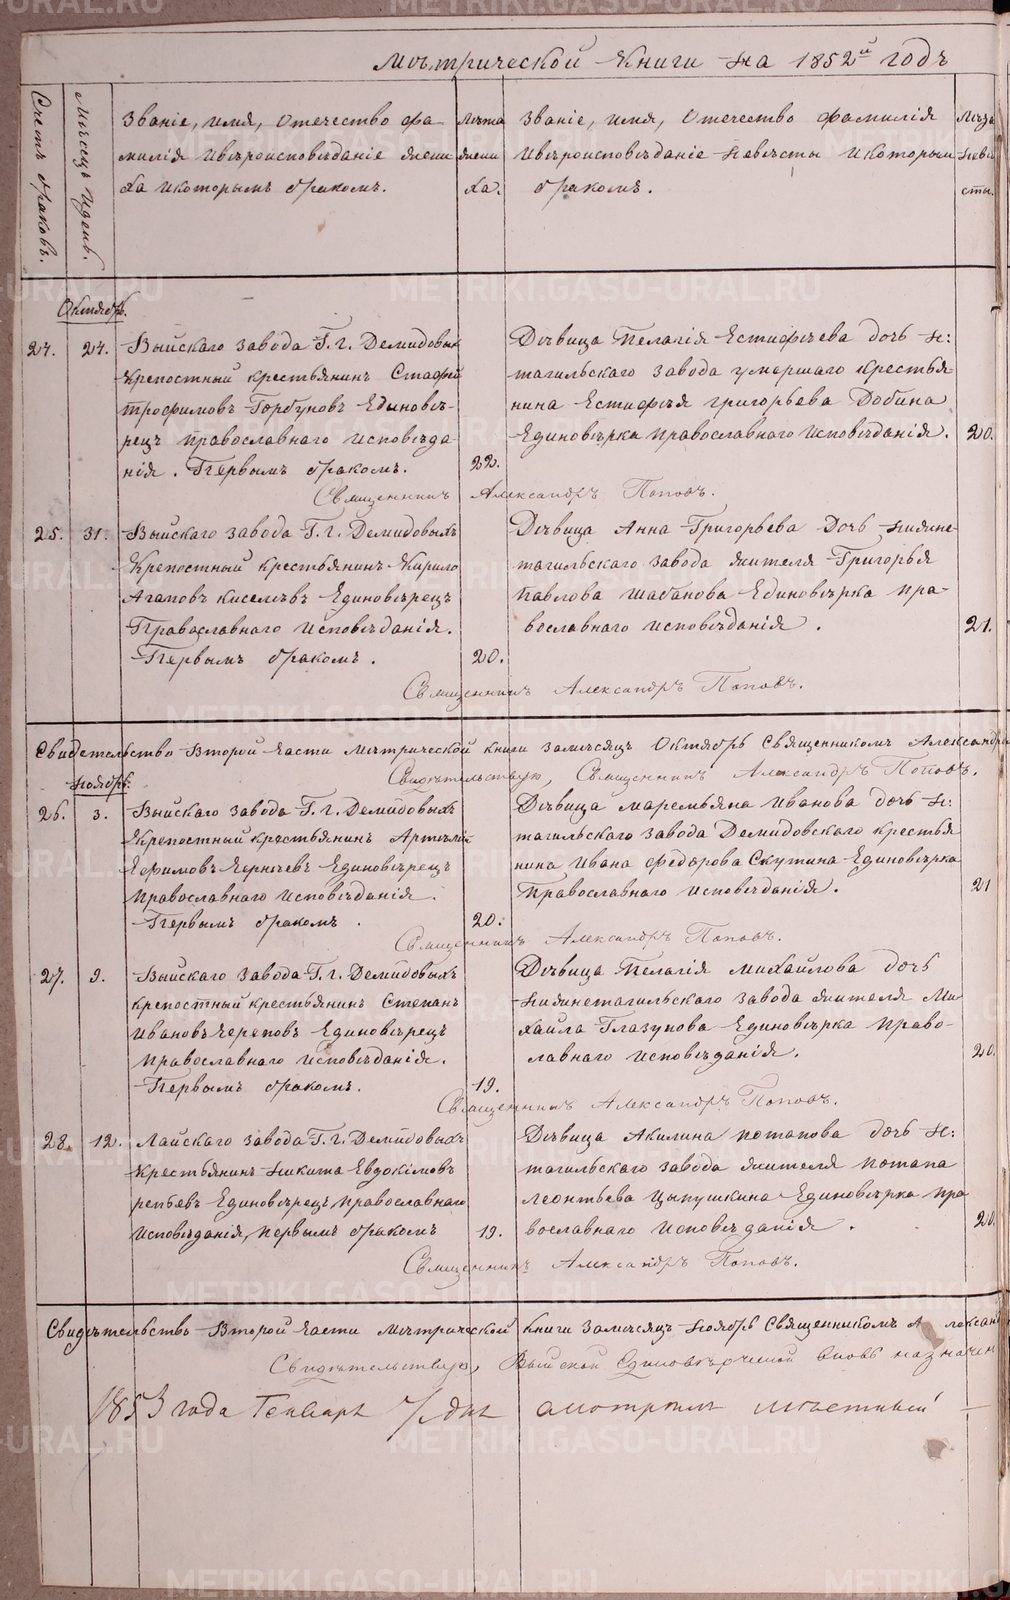 Метрической Книги на 1852й годъ
Счетъ браковъ.
Мѣсяцъ и день.
Званіе, имя, отечество фа-
милія и вѣроисповѣданіе жени
ха и которымъ бракомъ.
Лѣта
жени
ха.
Званіе, имя, отечество фамилія
и вѣроисповѣданіе невѣсты и которым
бракомъ.
Лѣта
невѣ
сты.
Октябрь.
24. 24. Выйскаго завода Г. г. Демидовых
крепостный крестьянинъ Стафій
Трофимовъ Горбуновъ Единовѣ-
рецъ православнаго исповѣда-
нія. Первымъ бракомъ. 22.
Дѣвица Пелагія Естифѣева дочь Н:
тагильскаго завода умершаго крестья
нина Естифѣя григорьева Добина
Единовѣрка православнаго исповѣданія. 20.
Священникъ Александръ Поповъ.
25. 31. Выйскаго завода Г. г. Демидовыхъ
Крепостный крестьянинъ Кирило
Агаповъ киселѣвъ Единовѣрецъ
Православнаго исповѣданія.
Первымъ бракомъ. 20.
Дѣвица Анна Григорьева Дочь нижне-
тагильскаго завода жителя Григорья
павлова шабанова Единовѣрка пра-
вославнаго исповѣданія. 21.
Священникъ Александръ Поповъ.
Свидетельство Второй части Мѣтрической книги замѣсяцъ Октябрь Священникомъ Александр
Свидѣтельствую, Священникъ Александръ Поповъ.
Ноябрь.
26. 3. Выйскаго завода Г. г. Демидовыхъ
крепостный крѣстьянинъ Артѣмій
Ефимовъ Единовѣрецъ
православнаго исповѣданія.
Первымъ бракомъ. 20.
Дѣвица маремьяна Иванова дочь Н:
тагильскаго завода Демидовскаго крестья
нина Ивана федорова Скутина Единовѣрка
православнаго исповѣданія. 21
Священникъ Александръ Поповъ.
27. 9. Выйскаго завода Г. г. Демидовыхъ
крепостный крестьянинъ Степанъ
Ивановъ Черепов Единовѣрецъ
православнаго исповѣданія.
Первымъ бракомъ. 19.
Дѣвица Пелагія михайлова дочь
нижнетагильскаго завода жителя Ми
хайла Глазунова Единовѣрка право-
славнаго исповѣданія. 20.
Священникъ Александръ Поповъ.
28. 12. Лайскаго завода Г. г. Демидовыхъ
крестьянинъ никита Евдокимовъ
репьевъ Единовѣрецъ, православнаго
исповѣданія, первымъ бракомъ 19.
Дѣвица Акилина потапова дочь Н:
тагильскаго завода жителя потапа
леонтьева цыпушкина Единовѣрка пра
вославнаго исповѣданія. 20.
Священникъ Александръ Поповъ.
Свидѣтельство Второй части Мѣтрической книги замѣсяцъ ноябрь Священникомъ Александ
Свидѣтельствую, Выйской Единовѣрческой вновь назначен
1853 года Генваря 7 дня смотрѣлъ мѣстный
METRIKI.GASO-URAL.RU